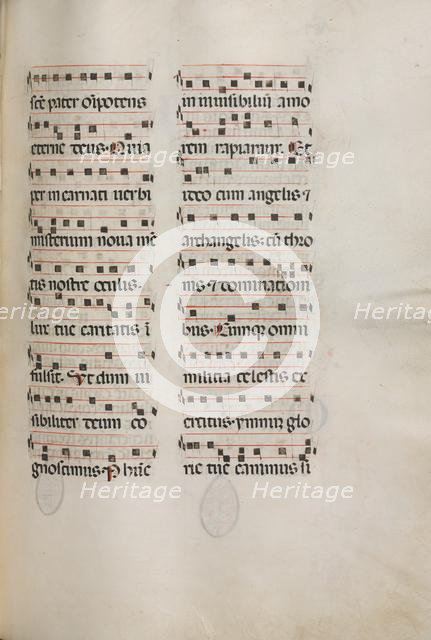 sce pater om̅ipotens
eterne deus. Quia
per incarnati uerbi
misterium noua me̅
tis nostre oculis
lux tue caritatis i̅
fulsit. Vt dum ui
sibiliter deum co
gnoscimus. P hu̅c
in inuisibiliu̅ amo
rem rapiamur. Et
ideo cum angelis ⁊
archangelis: cu̅ thro
nis ⁊ dominationi
bus. Cumq̅ omni
militia celestis ex
ercitus. ymnu̅ glo
rie tue canimus si
Heritage
Heritage
Heritage
Heritage
Heritage
Heritage
Heritage